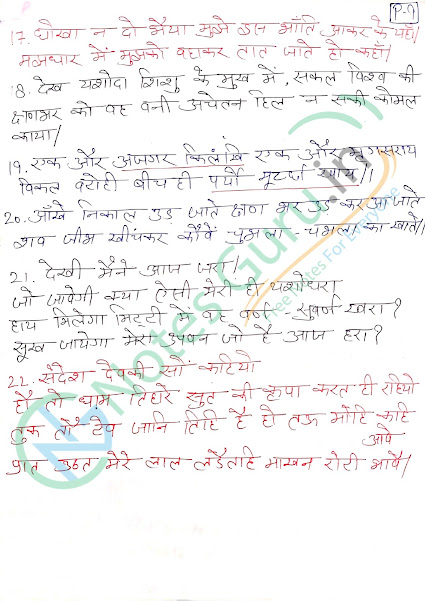 P-9
17. धोखा न दो भैया मुझे इस भाँति आकर के यहाँ।
मझधार में मुझको बहाकर तात जाते हो कहाँ।
18. देख यशोदा शिशु के मुख में, सकल विश्व की
क्षणभर को वह बनी अचेतन हिल न सकी कोमल
काया।
19. एक और अजगर किलंखि एक और मृगसराय
विकल बरोही बीच ही पर्यो मूरर्छा खाय।।
20. आँखे निकाल उड़ जाते क्षण भर उड़ कर आ जाते
शव जीभ खींचकर कौवें चुभला-चभला कर खाते।
21. देखी मैंने आज जरा।
जो जावेगी क्या ऐसी मेरी ही यशोधरा
हाय मिलेगा मिट्टी में वह वर्ण-सुवर्ण खरा?
सूख जायेगा मेरा उपवन जो है आज हरा?
22. संदेश देवकी सौं कहियो
हौं तो धाम तिहारे सुत की कृपा करत ही रहियो
तुक तौ देव जानि तिहि है हौ तऊ मोहि कहि
आवे
प्रात उठत मेरे लाल लडैतहि माखन रोटी भावै।
NotesGuru.in
Free Notes For Everyone